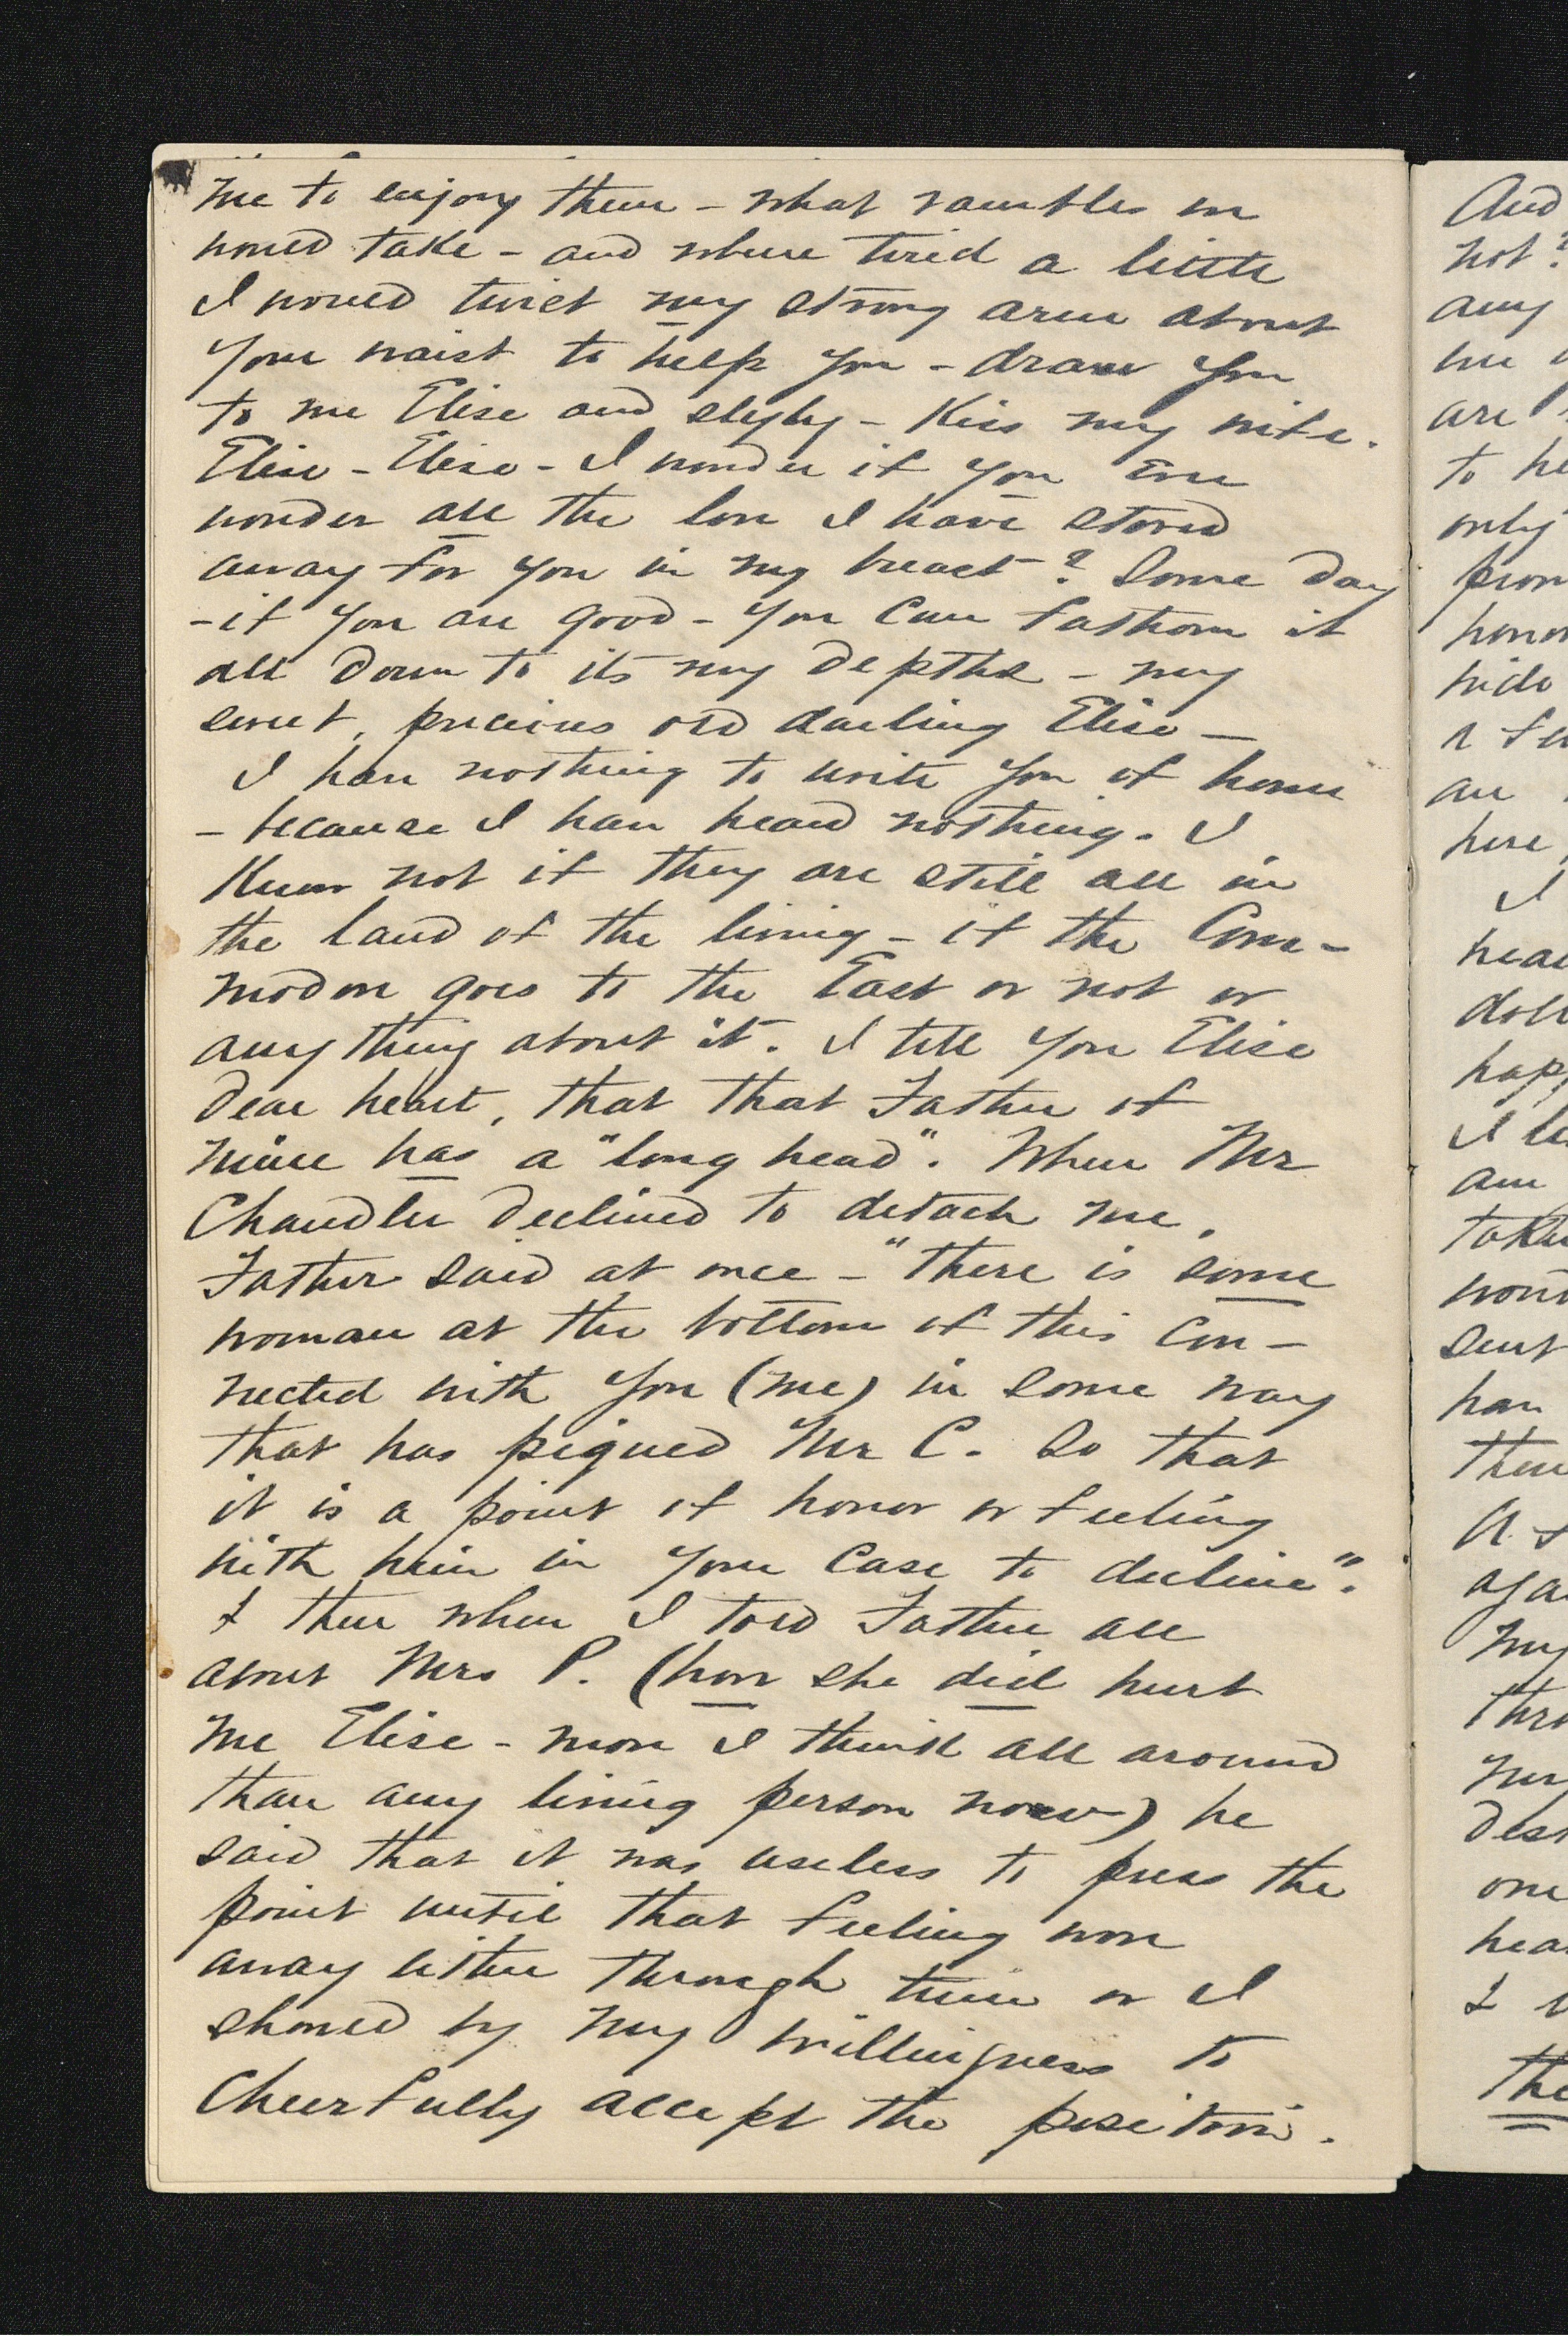 me to enjoy them - what rambles we
would take - and when tired a little
I would twist my strong arm about
your waist to help you - draw you
to me Elise and slyly - Kiss my wife.
Elise - Elise - I wonder if you ever
wonder all the love I have stored
away for you in my breast? Some day
- if you are good - you can fathom it
all down to its very depths - my
sweet, precious old darling Elise -
I have nothing to write you of home
- because I have heard nothing. I
Know not if they are still all in
the land of the living - if the Com-
modore goes to the East or not or
any thing about it. I tell you Elise
dear heart, that that Father of
mine has a "long head". When Mr
Chandler declined to detach me,
Father said at once - "there is some
woman at the bottom of this con-
nected with you (me) in some way
that has piqued Mr C. so that
it is a point of honor or feeling
with him in your case to decline".
& then when I told Father all
about Mrs P. (how she did hurt
me Elise - more I think all around
than any living person now) he
said that it was useless to press the
point until that feeling wore
away either through time or I
showed by my willingness to
cheerfully accept the position.
And
not?
any
me
are
to he
only
prom
honor
hide
a fe
an
here,
I
hear
doll
hap
I le
am
taken
won
sent
have
them
A f
aga
my
thro
mr
des
one
hea
I
the